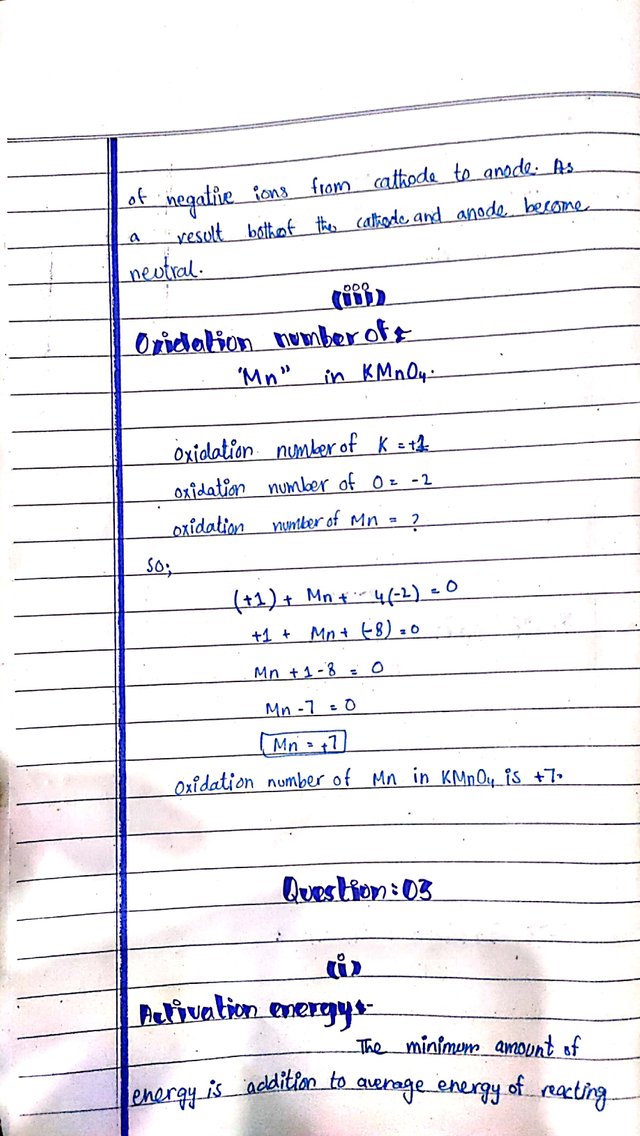 of negative ions from cathode to anode. As
a result bothof the cathode and anode become
neutral.
(iii)
Oxidation number of:-
"Mn" in KMnO₄.
Oxidation number of K = +1
oxidation number of O = -2
oxidation number of Mn = ?
SO;
(+1) + Mn + 4(-2) = 0
+1 + Mn + (-8) = 0
Mn + 1 - 8 = 0
Mn - 7 = 0
Mn = +7
Oxidation number of Mn in KMnO₄ is +7.
Question: 03
(i)
Activation energy:-
The minimum amount of
energy is addition to average energy of reacting